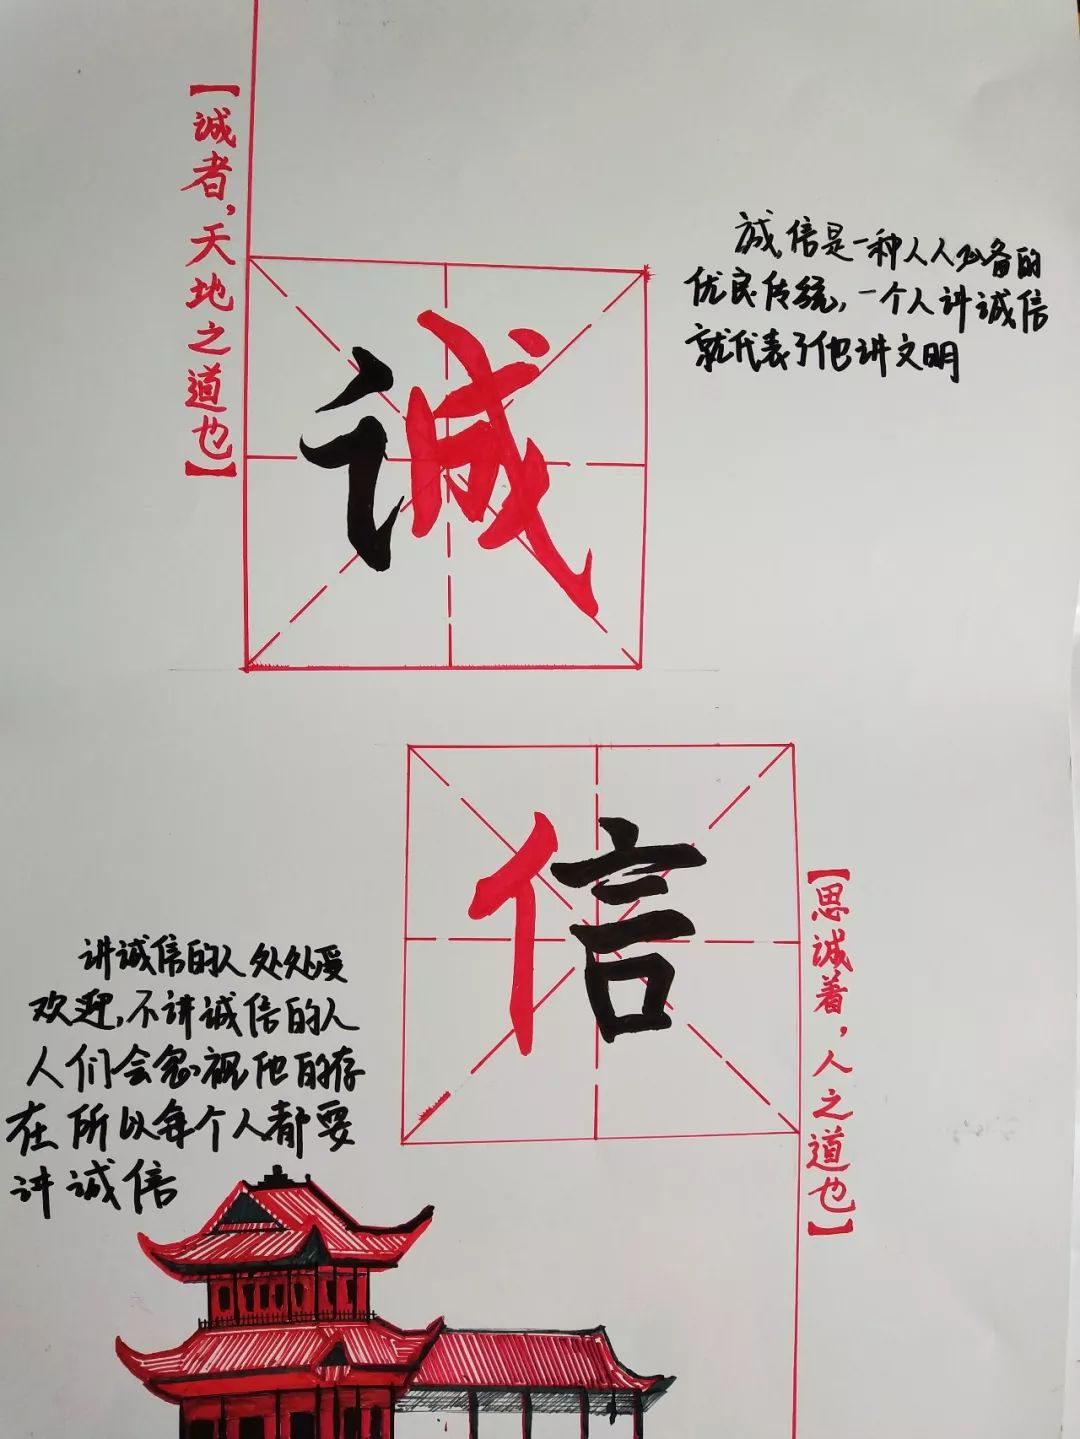 【诚者，天地之道也】
诚信是一种人人必备的
优良传统，一个人讲诚信
就代表了他讲文明
诚
信
【思诚着，人之道也】
讲诚信的人处处受
欢迎，不讲诚信的人
人们会忽视他的存
在所以每个人都要
讲诚信